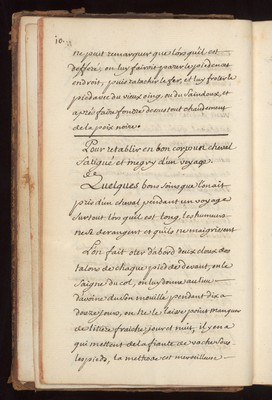 10.
ne peut remarquer que lors qu'il est
defferé, on luy fairoit parer le pied en cet
endroit, puis ratacher le fer, et luy froter le
pied avec du vieux oing, ou du Saindoux, et
apres faire fondre dessus tout chaudement
de la poix noire.
Pour retablir en bon corps un cheval
fatigué et megry d'un voyage.
Quelques bons soins que l'on ait
pris d'un cheval pendant un voyage
surtout lors qu'il est long, les humeurs
ne se derangent et qu'ils ne maigrissent
L'on fait oter d'abord deux cloux des
talons de chaque pied de devant, on le
saigne du col, on luy donne au lieu
d'avoine du Son mouillé pendant dix a
douze jours, on ne le laisse point manquer
de litiere fraiche, jour et nuit, il y en a
qui mettent de la fiante de vache sous
les pieds, la methode est merveilleuse